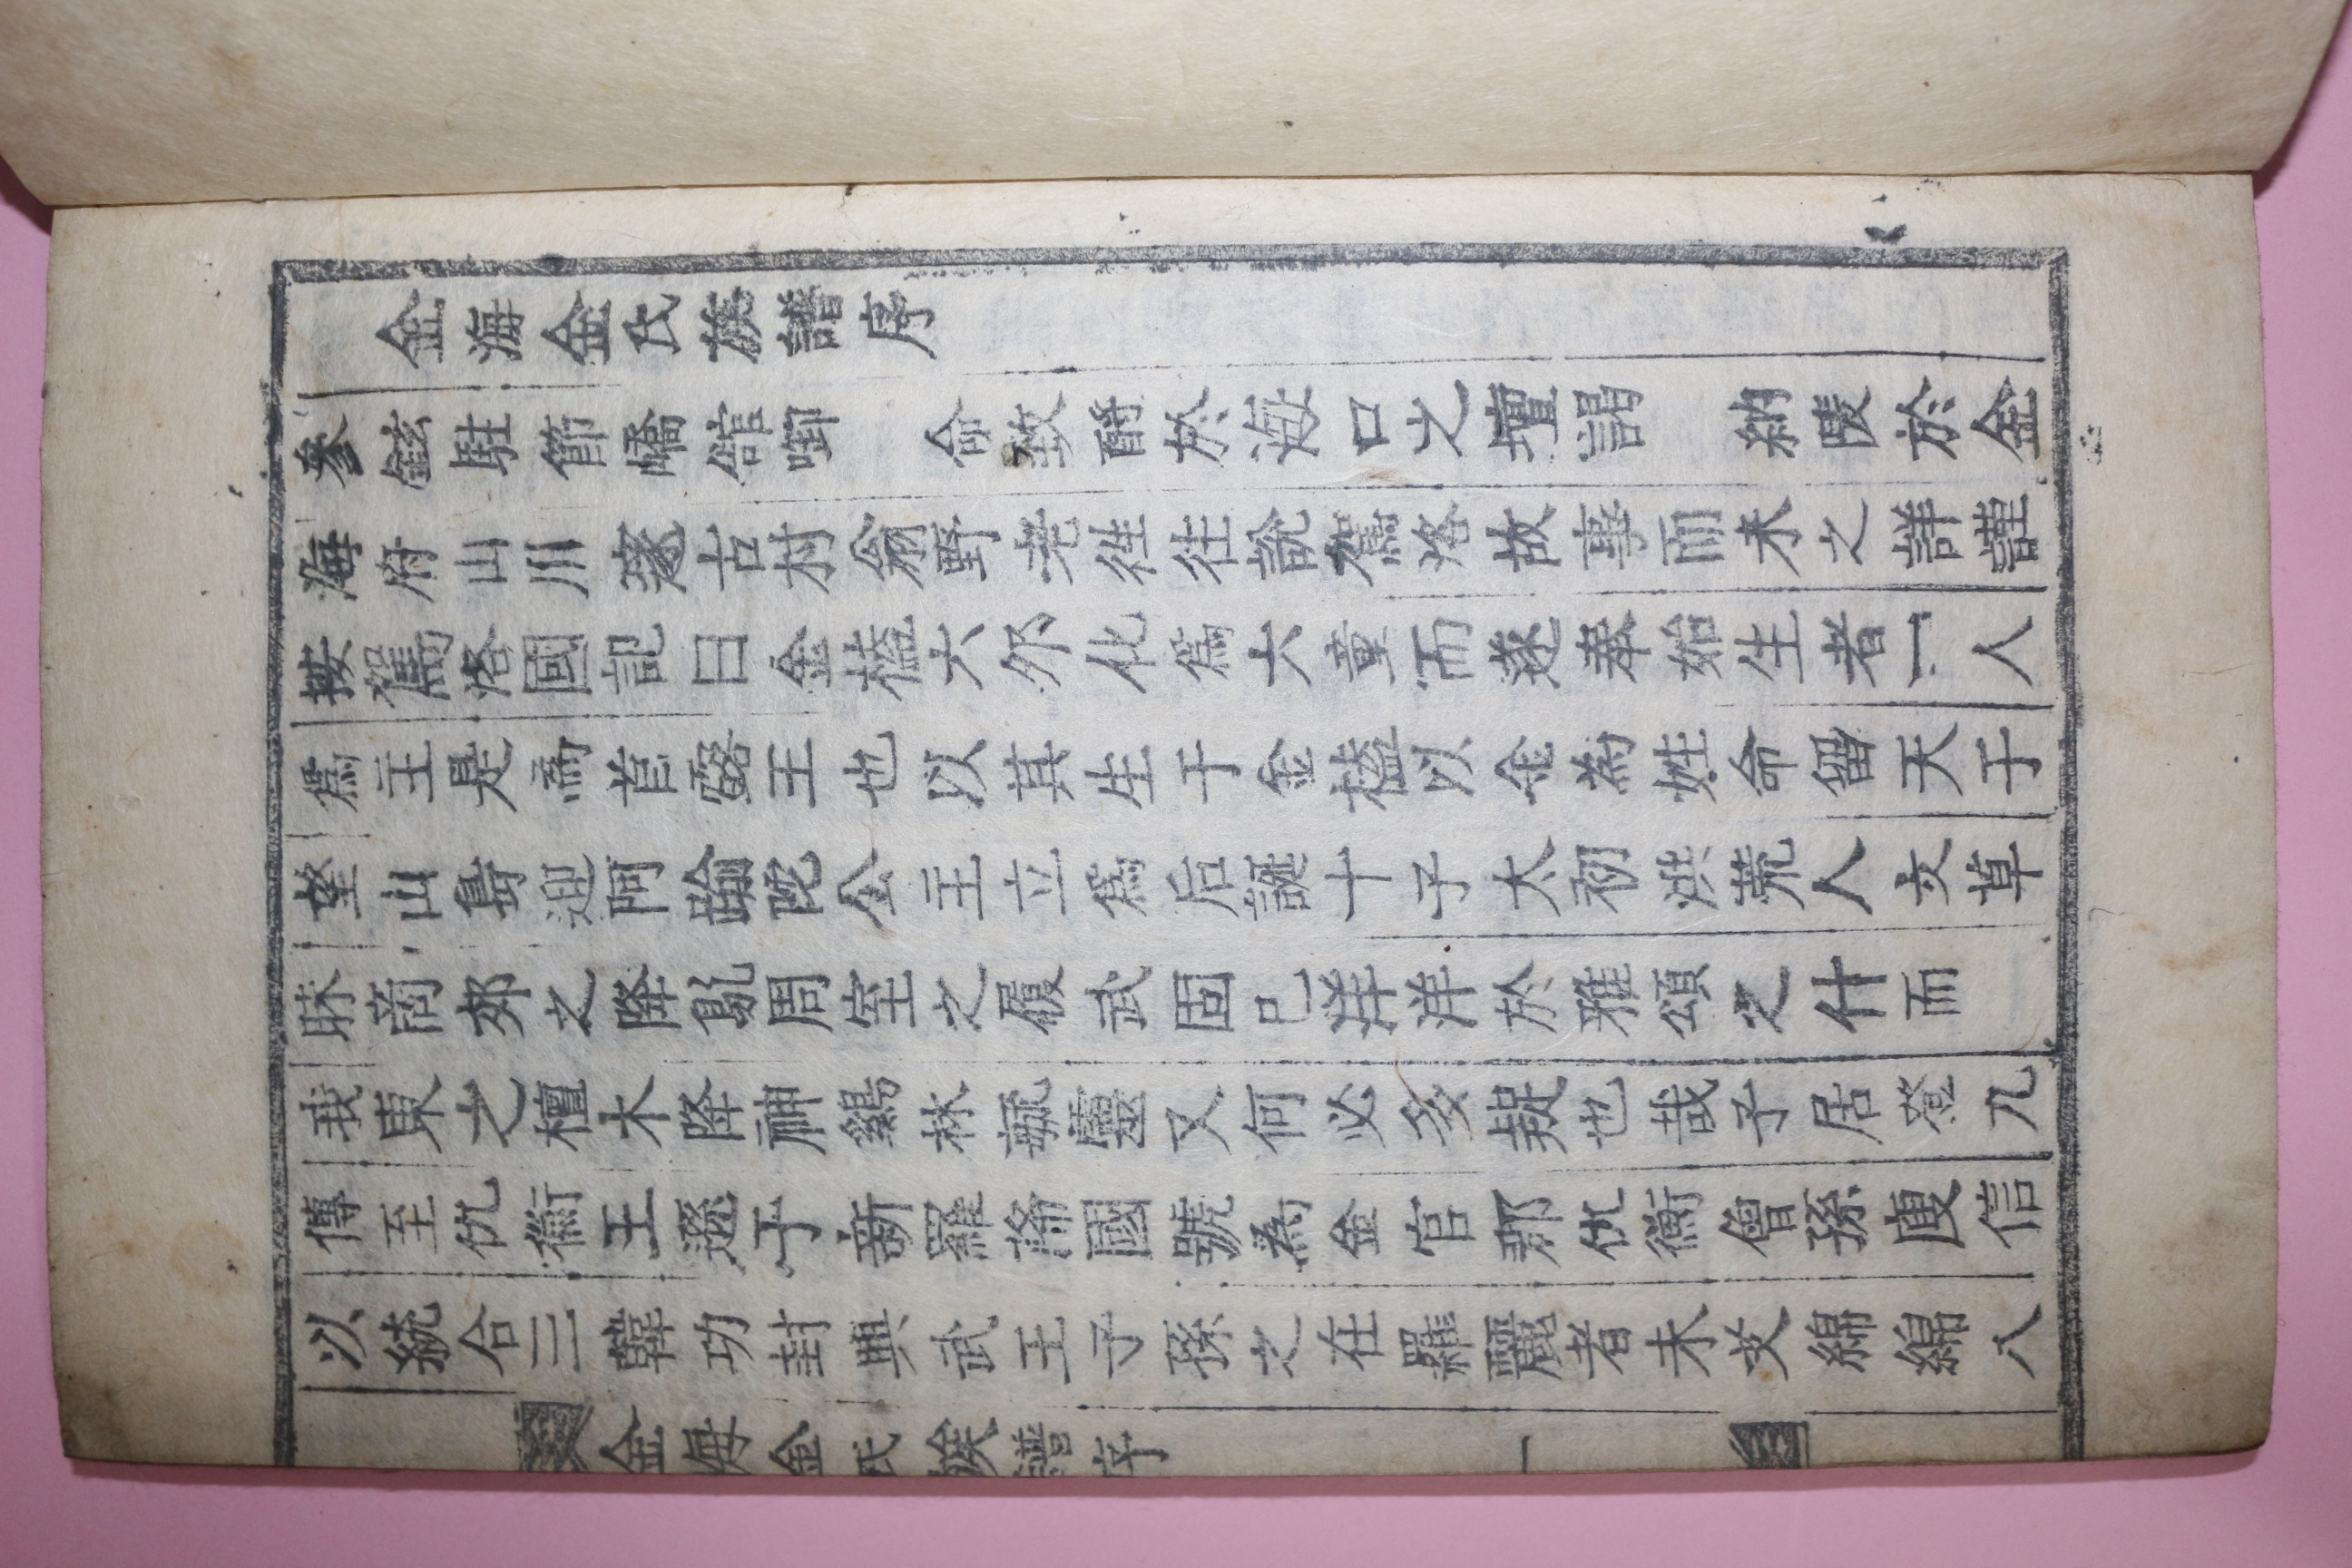 金海金氏族譜序
參鉉駐節嶠舘啣 命致酹於海口之壇謁 納陵於金
海府山川邃古村翁野老徃徃說駕洛故事而未之詳謹
按駕洛國記曰金榼六卵化爲六童而遂奉始生者一人
爲主是爲首露王也以其生于金榼以金為姓命留天于
望山島迎阿踰陀公主立爲后誕十子太初洪荒人文草
昧商郊之降鳦周室之履武固已洋洋於雅頌之什而
我東之檀木降神鷄林毓靈又何必多疑也哉子居登九
傳至仇衡王遜于新羅羅國號為金官郡仇衡曾孫庾信
以統合三韓功封興武王子孫之在羅麗者未艾綿綿八
金海金氏族譜序 一